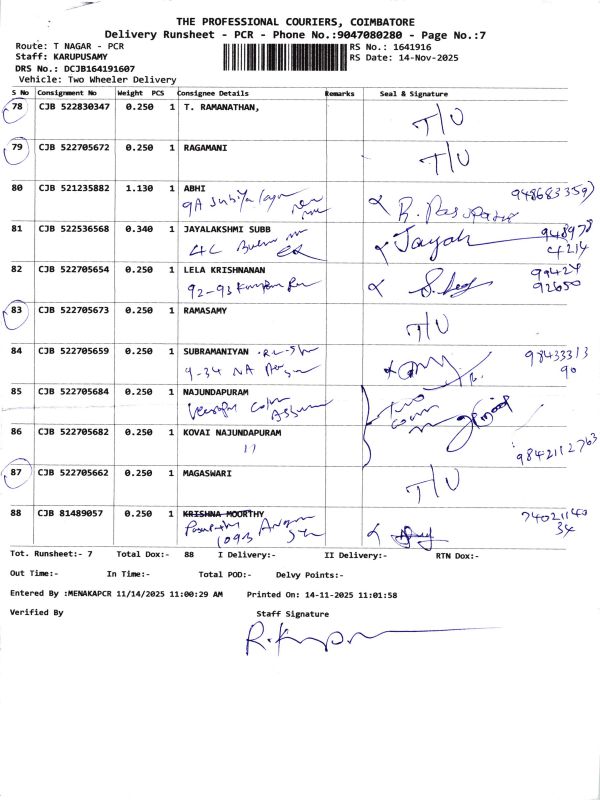 THE PROFESSIONAL COURIERS, COIMBATORE
Delivery Runsheet - PCR - Phone No.:9047080280 - Page No.:7
Route: T NAGAR - PCR RS No.: 1641916
Staff: KARUPUSAMY RS Date: 14-Nov-2025
DRS No.: DCJB164191607
Vehicle: Two Wheeler Delivery
S No Consignment No Weight PCS Consignee Details Remarks Seal & Signature
78 CJB 522830347 0.250 1 T. RAMANATHAN,
T/U
79 CJB 522705672 0.250 1 RAGAMANI
T/U
80 CJB 521235882 1.130 1 ABHI
9A
R. Pasupathi
81 CJB 522536568 0.340 1 JAYALAKSHMI SUBB 948978
4C Jayak 4214
82 CJB 522705654 0.250 1 LELA KRISHNANAN 99424
92-93 92650
83 CJB 522705673 0.250 1 RAMASAMY
T/U
84 CJB 522705659 0.250 1 SUBRAMANIYAN 98433313
9-34 NA 90
85 CJB 522705684 0.250 1 NAJUNDAPURAM
Two
86 CJB 522705682 0.250 1 KOVAI NAJUNDAPURAM
11 9842112763
87 CJB 522705662 0.250 1 MAGASWARI
T/U
88 CJB 81489057 0.250 1 KRISHNA MOORTHY 74021140
109B 34
Tot. Runsheet:- 7 Total Dox:- 88 I Delivery:- II Delivery:- RTN Dox:-
Out Time:- In Time:- Total POD:- Delvy Points:-
Entered By :MENAKAPCR 11/14/2025 11:00:29 AM Printed On: 14-11-2025 11:01:58
Verified By Staff Signature